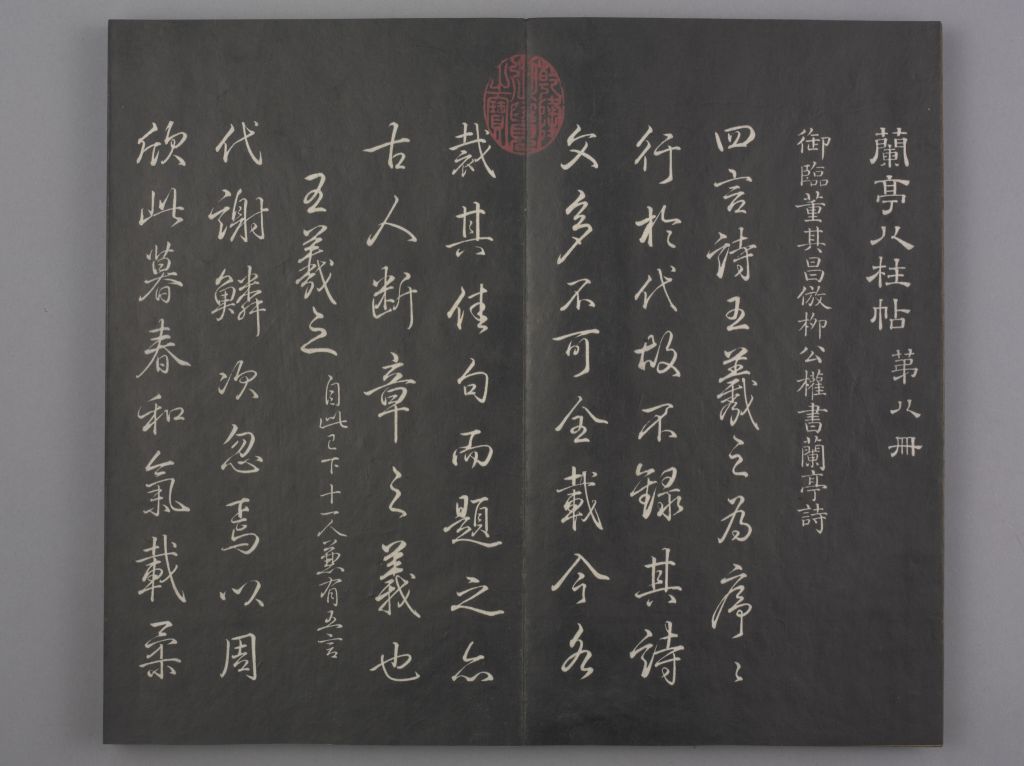 蘭亭八柱帖 第八冊
御臨董其昌倣柳公權書蘭亭詩
四言詩王羲之為序〻
行於代故不錄其詩
文多不可全載今各
裁其佳句而題之亦
古人断章之義也
王羲之 自此已下十一人兼有五言
代謝鱗次忽焉以周
欣此暮春和氣載柔